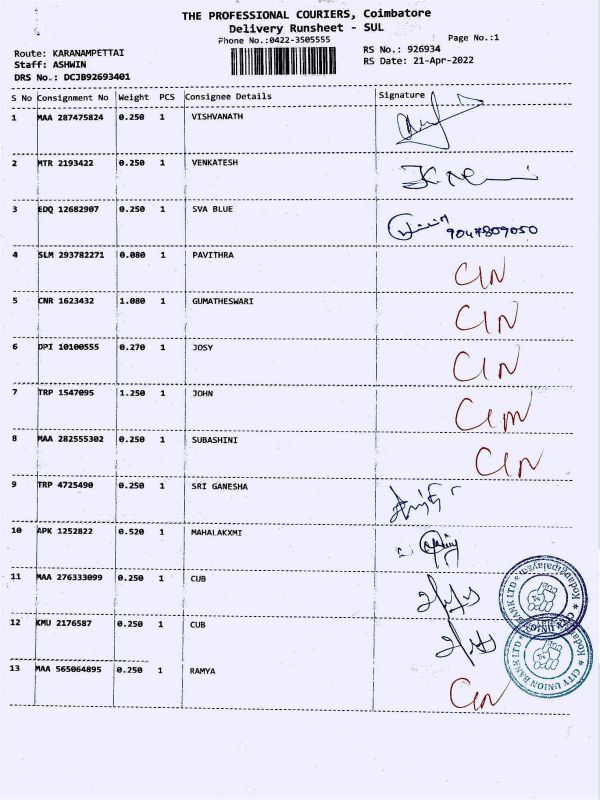 THE PROFESSIONAL COURIERS, Coimbatore
Delivery Runsheet - SUL
Phone No.:0422-3505555
Page No.:1
Route: KARANAMPETTAI
RS No.: 926934
Staff: ASHWIN
RS Date: 21-Apr-2022
DRS No.: DCJB92693401
S No Consignment No Weight PCS Consignee Details Signature
1 MAA 287475824 0.250 1 VISHVANATH
2 MTR 2193422 0.250 1 VENKATESH
3 EDQ 12682907 0.250 1 SVA BLUE 9047809050
4 SLM 293782271 0.080 1 PAVITHRA CIN
5 CNR 1623432 1.080 1 GUMATHESWARI CIN
6 DPI 10100555 0.270 1 JOSY CIN
7 TRP 1547095 1.250 1 JOHN CIN
8 MAA 282555302 0.250 1 SUBASHINI CIN
9 TRP 4725490 0.250 1 SRI GANESHA
10 APK 1252822 0.520 1 MAHALAKXMI
11 MAA 276333099 0.250 1 CUB
12 KMU 2176587 0.250 1 CUB
13 MAA 565064895 0.250 1 RAMYA CIN
CITY UNION BANK LTD